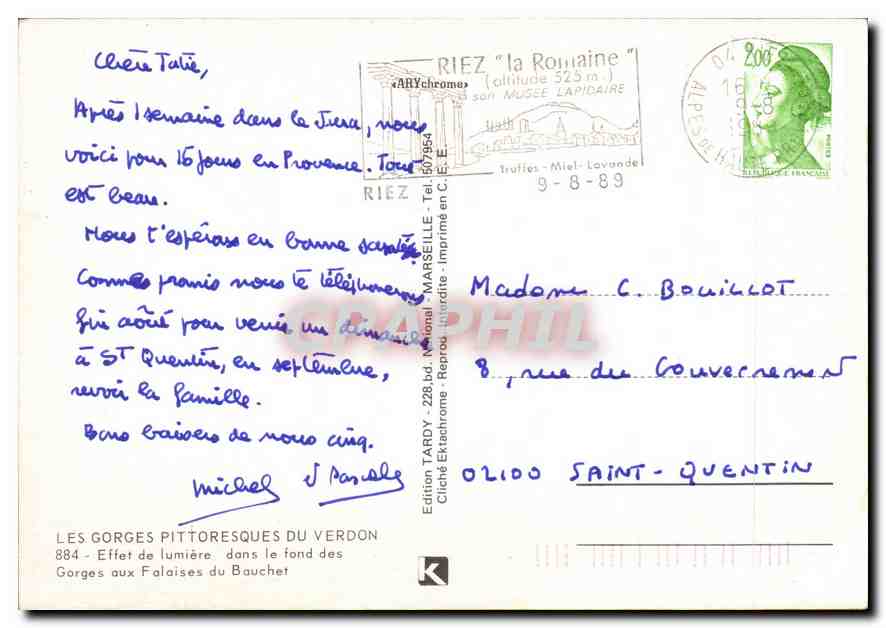 Chère Tatie,
Après 1 semaine dans le Jura, nous
voici pour 15 jours en Provence. Tout
est beau.
Nous t'espérons en bonne santé.
Comme promis nous te téléphonerons
fin août pour venir un dimanche
à St Quentin, en septembre,
revoir la famille.
Bons baisers de nous cinq.
Michel et Pascale
LES GORGES PITTORESQUES DU VERDON
884 - Effet de lumière dans le fond des
Gorges aux Falaises du Bauchet
RIEZ "la Romaine"
(altitude 525 m.)
son MUSEE LAPIDAIRE
«ARYchrome»
Truffes - Miel - Lavande
RIEZ
9-8-89
04
ALPES DE H
2,00
REPUBLIQUE FRANÇAISE
Edition TARDY - 228, bd. National - MARSEILLE - Tel. 507954
Cliché Ektachrome - Reprod. Interdite - Imprimé en C. E. E.
Madame C. BOUILLOT
8, rue du Gouvernement
02100 SAINT-QUENTIN
K
CPAPHIL